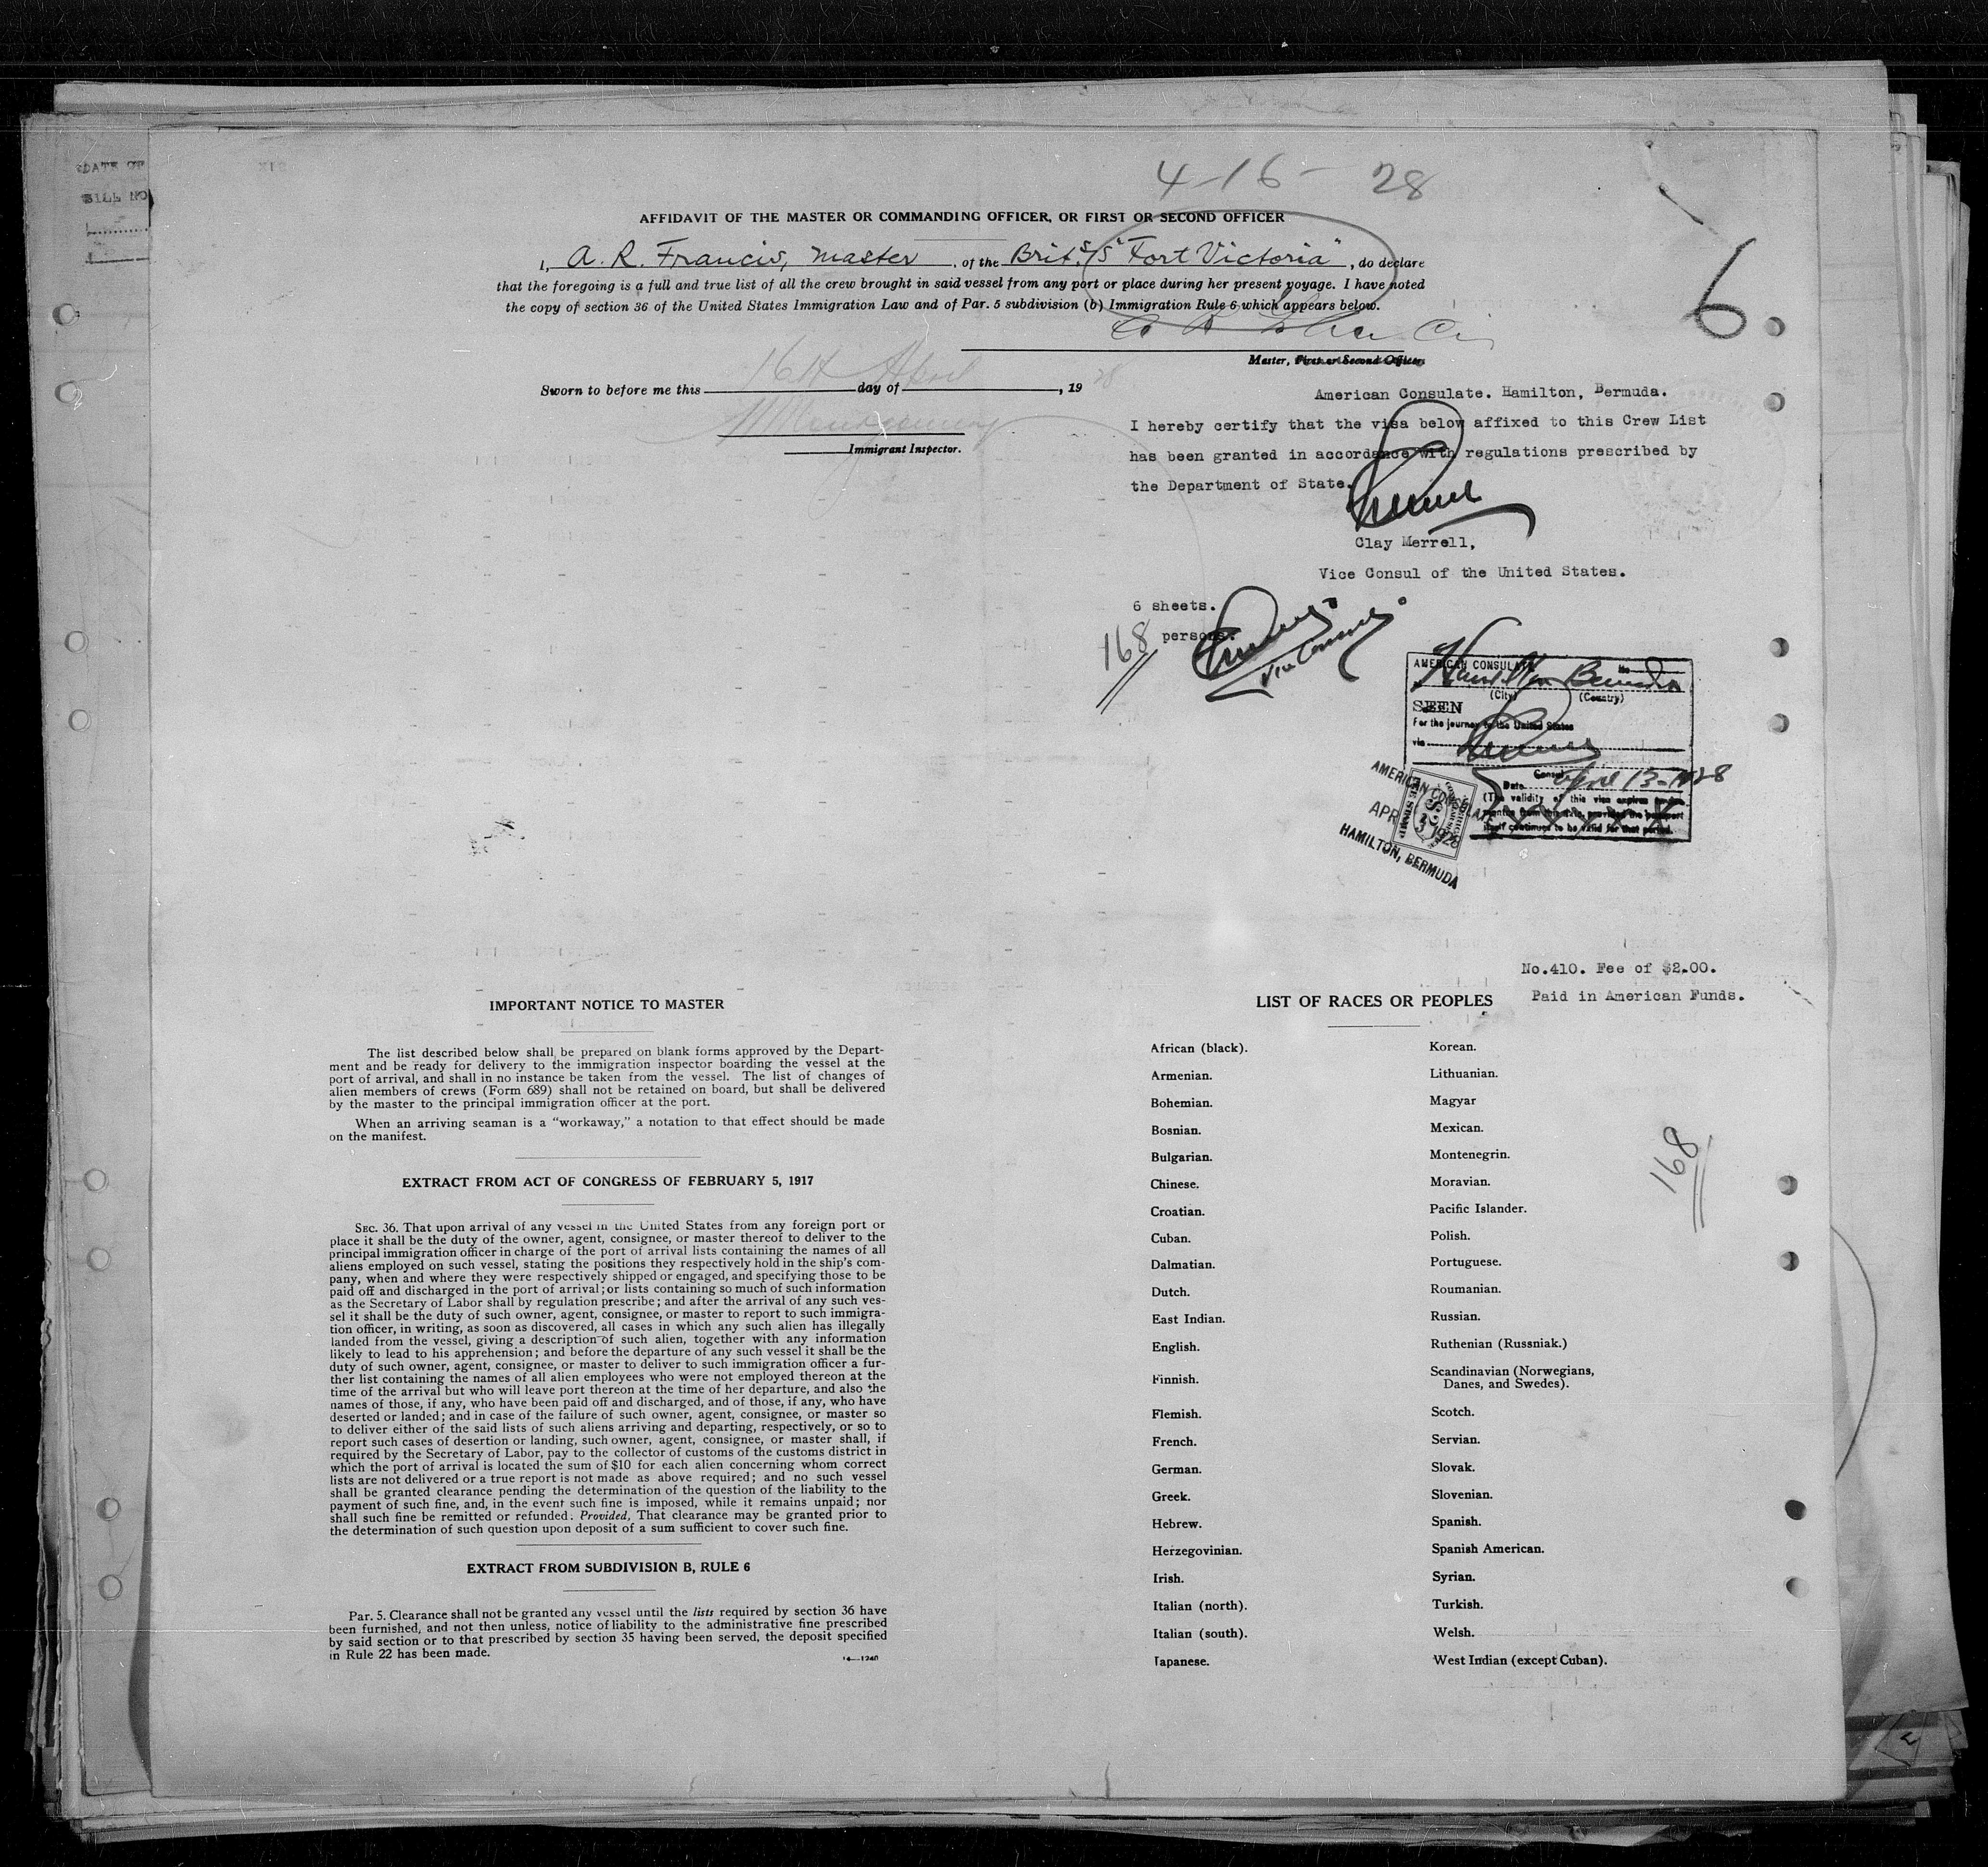 DATE OF
BILL NO
4-16-28
6
AFFIDAVIT OF THE MASTER OR COMMANDING OFFICER, OR FIRST OR SECOND OFFICER
I, A. R. Francis, Master, of the Brit. S/S "Fort Victoria", do declare
that the foregoing is a full and true list of all the crew brought in said vessel from any port or place during her present voyage. I have noted
the copy of section 36 of the United States Immigration Law and of Par. 5 subdivision (b) Immigration Rule 6 which appears below.
Master, First or Second Officer
Sworn to before me this 16th day of April, 1928
Immigrant Inspector.
American Consulate. Hamilton, Bermuda.
I hereby certify that the visa below affixed to this Crew List
has been granted in accordance with regulations prescribed by
the Department of State.
Clay Merrell,
Vice Consul of the United States.
6 sheets.
168 persons.
Vice Consul
AMERICAN CONSULATE No
Hamilton Bermuda
(City) (Country)
SEEN
For the journey to the United States
via
Consul
Date April 13-1928
(The validity of this visa expires twelve
months from this date, provided the passport
itself continues to be valid for that period.
AMERICAN CONSULATE
APR 13 1928
HAMILTON, BERMUDA
No.410. Fee of $2.00.
Paid in American Funds.
IMPORTANT NOTICE TO MASTER
The list described below shall be prepared on blank forms approved by the Depart-
ment and be ready for delivery to the immigration inspector boarding the vessel at the
port of arrival, and shall in no instance be taken from the vessel. The list of changes of
alien members of crews (Form 689) shall not be retained on board, but shall be delivered
by the master to the principal immigration officer at the port.
When an arriving seaman is a "workaway," a notation to that effect should be made
on the manifest.
EXTRACT FROM ACT OF CONGRESS OF FEBRUARY 5, 1917
SEC. 36. That upon arrival of any vessel in the United States from any foreign port or
place it shall be the duty of the owner, agent, consignee, or master thereof to deliver to the
principal immigration officer in charge of the port of arrival lists containing the names of all
aliens employed on such vessel, stating the positions they respectively hold in the ship's com-
pany, when and where they were respectively shipped or engaged, and specifying those to be
paid off and discharged in the port of arrival; or lists containing so much of such information
as the Secretary of Labor shall by regulation prescribe; and after the arrival of any such ves-
sel it shall be the duty of such owner, agent, consignee, or master to report to such immigra-
tion officer, in writing, as soon as discovered, all cases in which any such alien has illegally
landed from the vessel, giving a description of such alien, together with any information
likely to lead to his apprehension; and before the departure of any such vessel it shall be the
duty of such owner, agent, consignee, or master to deliver to such immigration officer a fur-
ther list containing the names of all alien employees who were not employed thereon at the
time of the arrival but who will leave port thereon at the time of her departure, and also the
names of those, if any, who have been paid off and discharged, and of those, if any, who have
deserted or landed; and in case of the failure of such owner, agent, consignee, or master so
to deliver either of the said lists of such aliens arriving and departing, respectively, or so to
report such cases of desertion or landing, such owner, agent, consignee, or master shall, if
required by the Secretary of Labor, pay to the collector of customs of the customs district in
which the port of arrival is located the sum of $10 for each alien concerning whom correct
lists are not delivered or a true report is not made as above required; and no such vessel
shall be granted clearance pending the determination of the question of the liability to the
payment of such fine, and, in the event such fine is imposed, while it remains unpaid; nor
shall such fine be remitted or refunded. Provided, That clearance may be granted prior to
the determination of such question upon deposit of a sum sufficient to cover such fine.
EXTRACT FROM SUBDIVISION B, RULE 6
Par. 5. Clearance shall not be granted any vessel until the lists required by section 36 have
been furnished, and not then unless, notice of liability to the administrative fine prescribed
by said section or to that prescribed by section 35 having been served, the deposit specified
in Rule 22 has been made.
14—1240
LIST OF RACES OR PEOPLES
African (black).
Armenian.
Bohemian.
Bosnian.
Bulgarian.
Chinese.
Croatian.
Cuban.
Dalmatian.
Dutch.
East Indian.
English.
Finnish.
Flemish.
French.
German.
Greek.
Hebrew.
Herzegovinian.
Irish.
Italian (north).
Italian (south).
Japanese.
Korean.
Lithuanian.
Magyar
Mexican.
Montenegrin.
Moravian.
Pacific Islander.
Polish.
Portuguese.
Roumanian.
Russian.
Ruthenian (Russniak.)
Scandinavian (Norwegians,
Danes, and Swedes).
Scotch.
Servian.
Slovak.
Slovenian.
Spanish.
Spanish American.
Syrian.
Turkish.
Welsh.
West Indian (except Cuban).
168